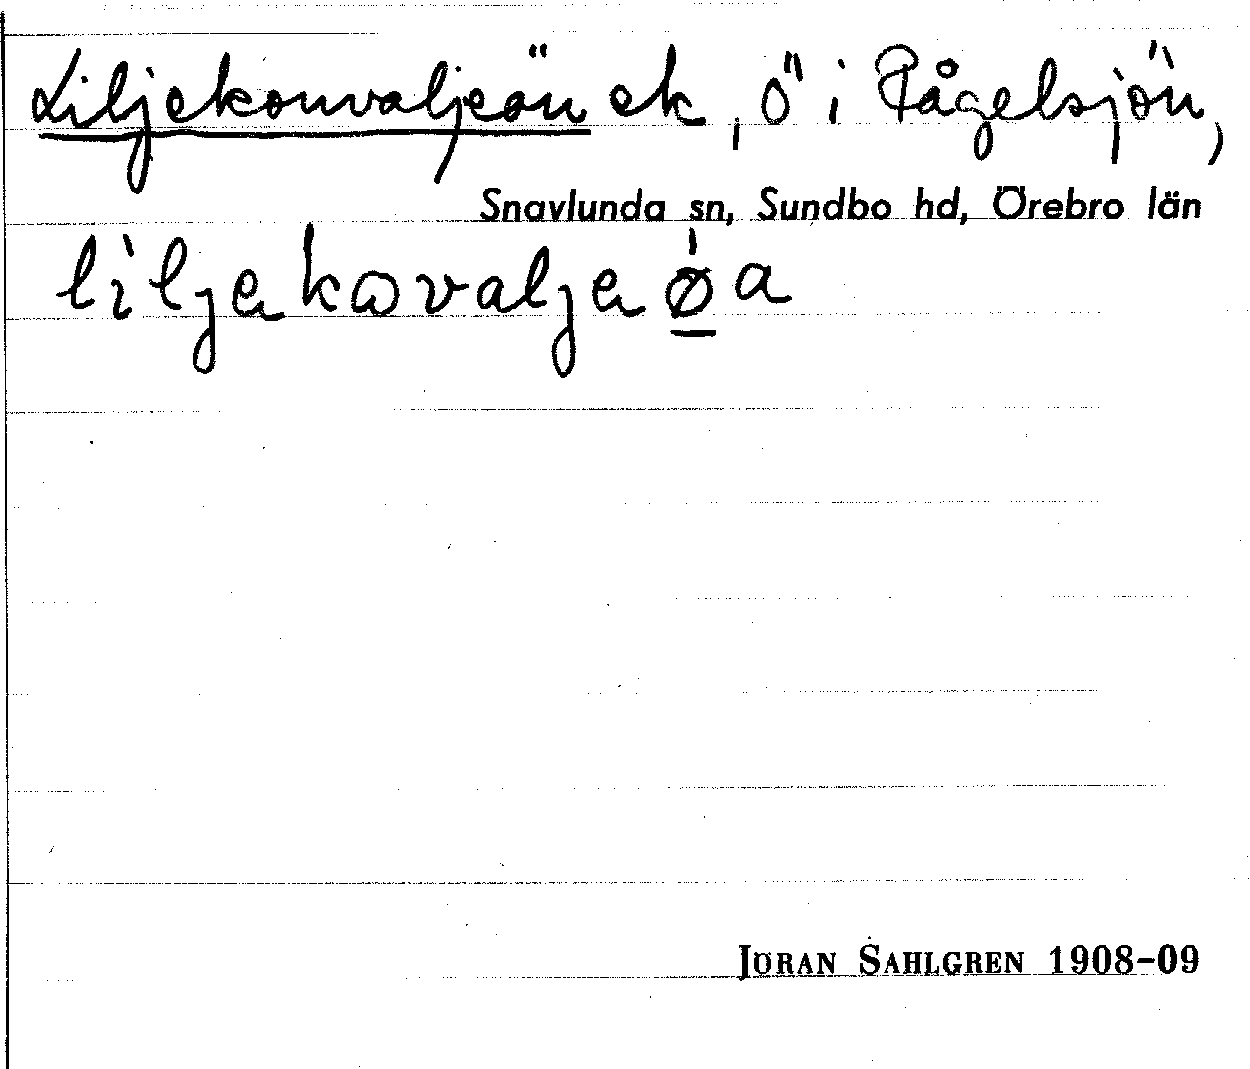 Liljekonvaljeön ek, ö i Rågelsjön,
Snavlunda sn, Sundbo hd, Örebro län
liljekovaljeøa
JÖRAN SAHLGREN 1908–09